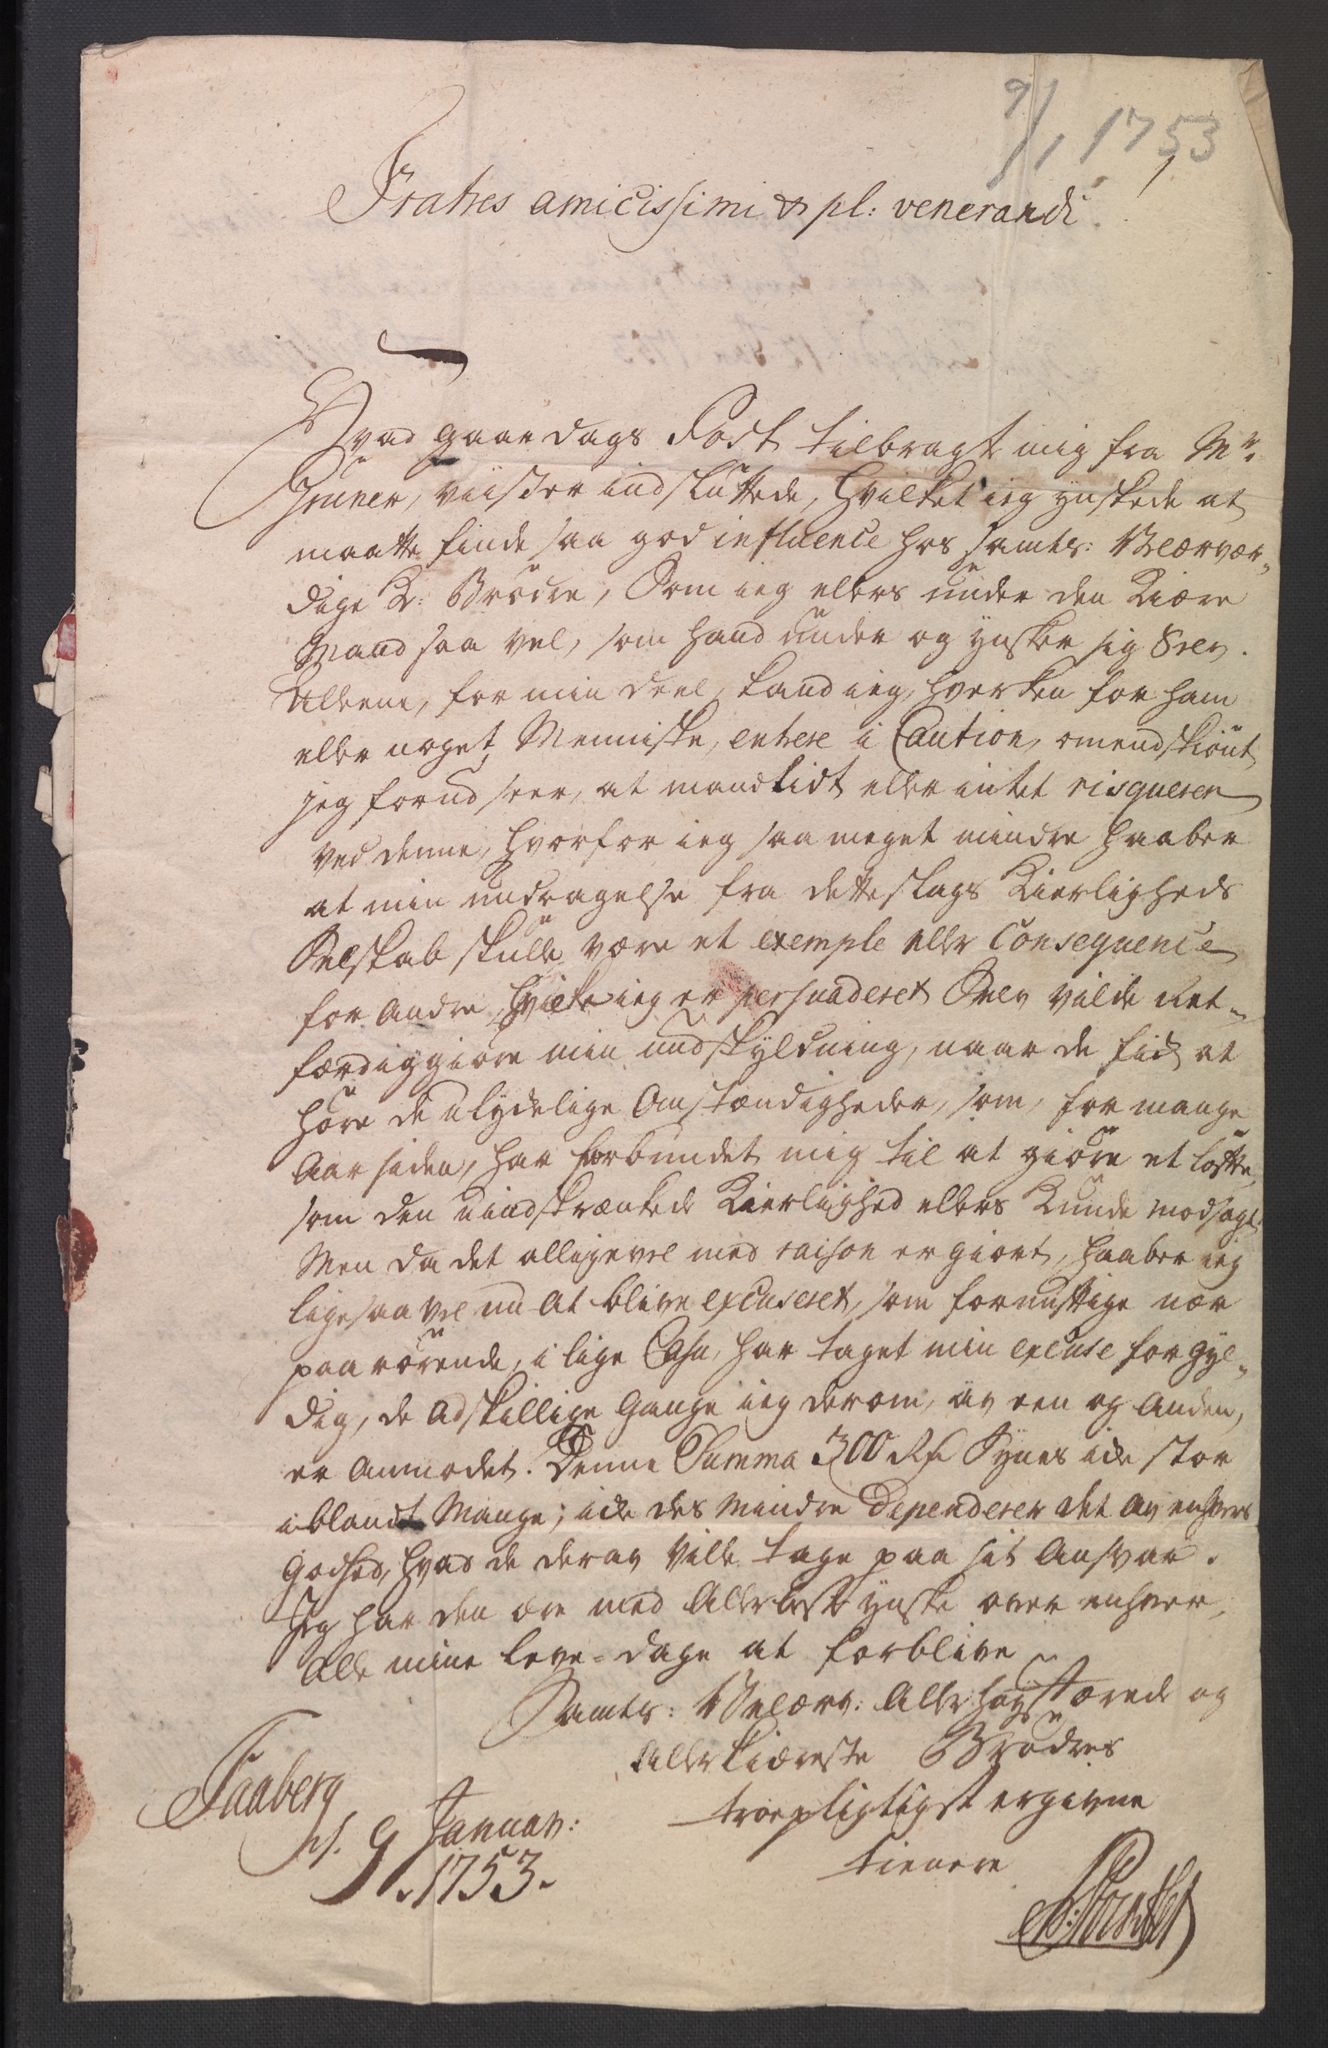 9/1 1753
Fratres amicissimi & pl: venerandi
Hvad gaardags Post tilbragt mig fra Mr.
Gruner, viiser indsluttede, hvilket ieg ynskede at
maatte finde saa god influence hos samtl: Velærvær-
dige K: Brødre, Som ieg ellers under den Kiære
Mand saa vel, som hand under og ynsker sig Selv.
Allene, for min deel, kand ieg, hverken for ham
eller noget Menniske, entrere i Caution, omendskiønt
jeg forud seer, at mand lidt eller intet risquerer
ved denne, hvorfor ieg saa meget mindre haaber
at min undragelse fra dette slags Kierligheds
Selskab skulle være et exemple eller Consequence
for Andre, hvilke ieg er persuaderet Selv vilde ret-
færdiggiøre min undskyldning, naar de fick at
høre de ulydelige Omstændigheder, som, for mange
Aar siden, har forbundet mig til at giøre et løfte,
som den uindskrænkede Kierlighed ellers Kunde modsagt.
Men da det alligevel med raison er giort, haaber ieg
ligesaa vel nu at blive excuseret, som fornuftige nær
paarørende, i lige Casu, har taget min excuse for gyl-
dig, de adskillige Gange ieg derom, av een og Anden,
er Anmodet. Denne Summa 300 Rdr Synes icke stor
iblandt Mange; icke des mindre dependerer det av enhvers
Godhed, hvad de derav ville tage paa sit Ansvar.
Jeg har den ære med Allerbeste ynske over enhver,
Alle mine leve-dage at forblive
Samtl: Velærv: Allerhøystærede og
Allerkiæreste Brødres
troepligtigst ergivne
tienere
Faaberg
d. 9 Januar:
1753.